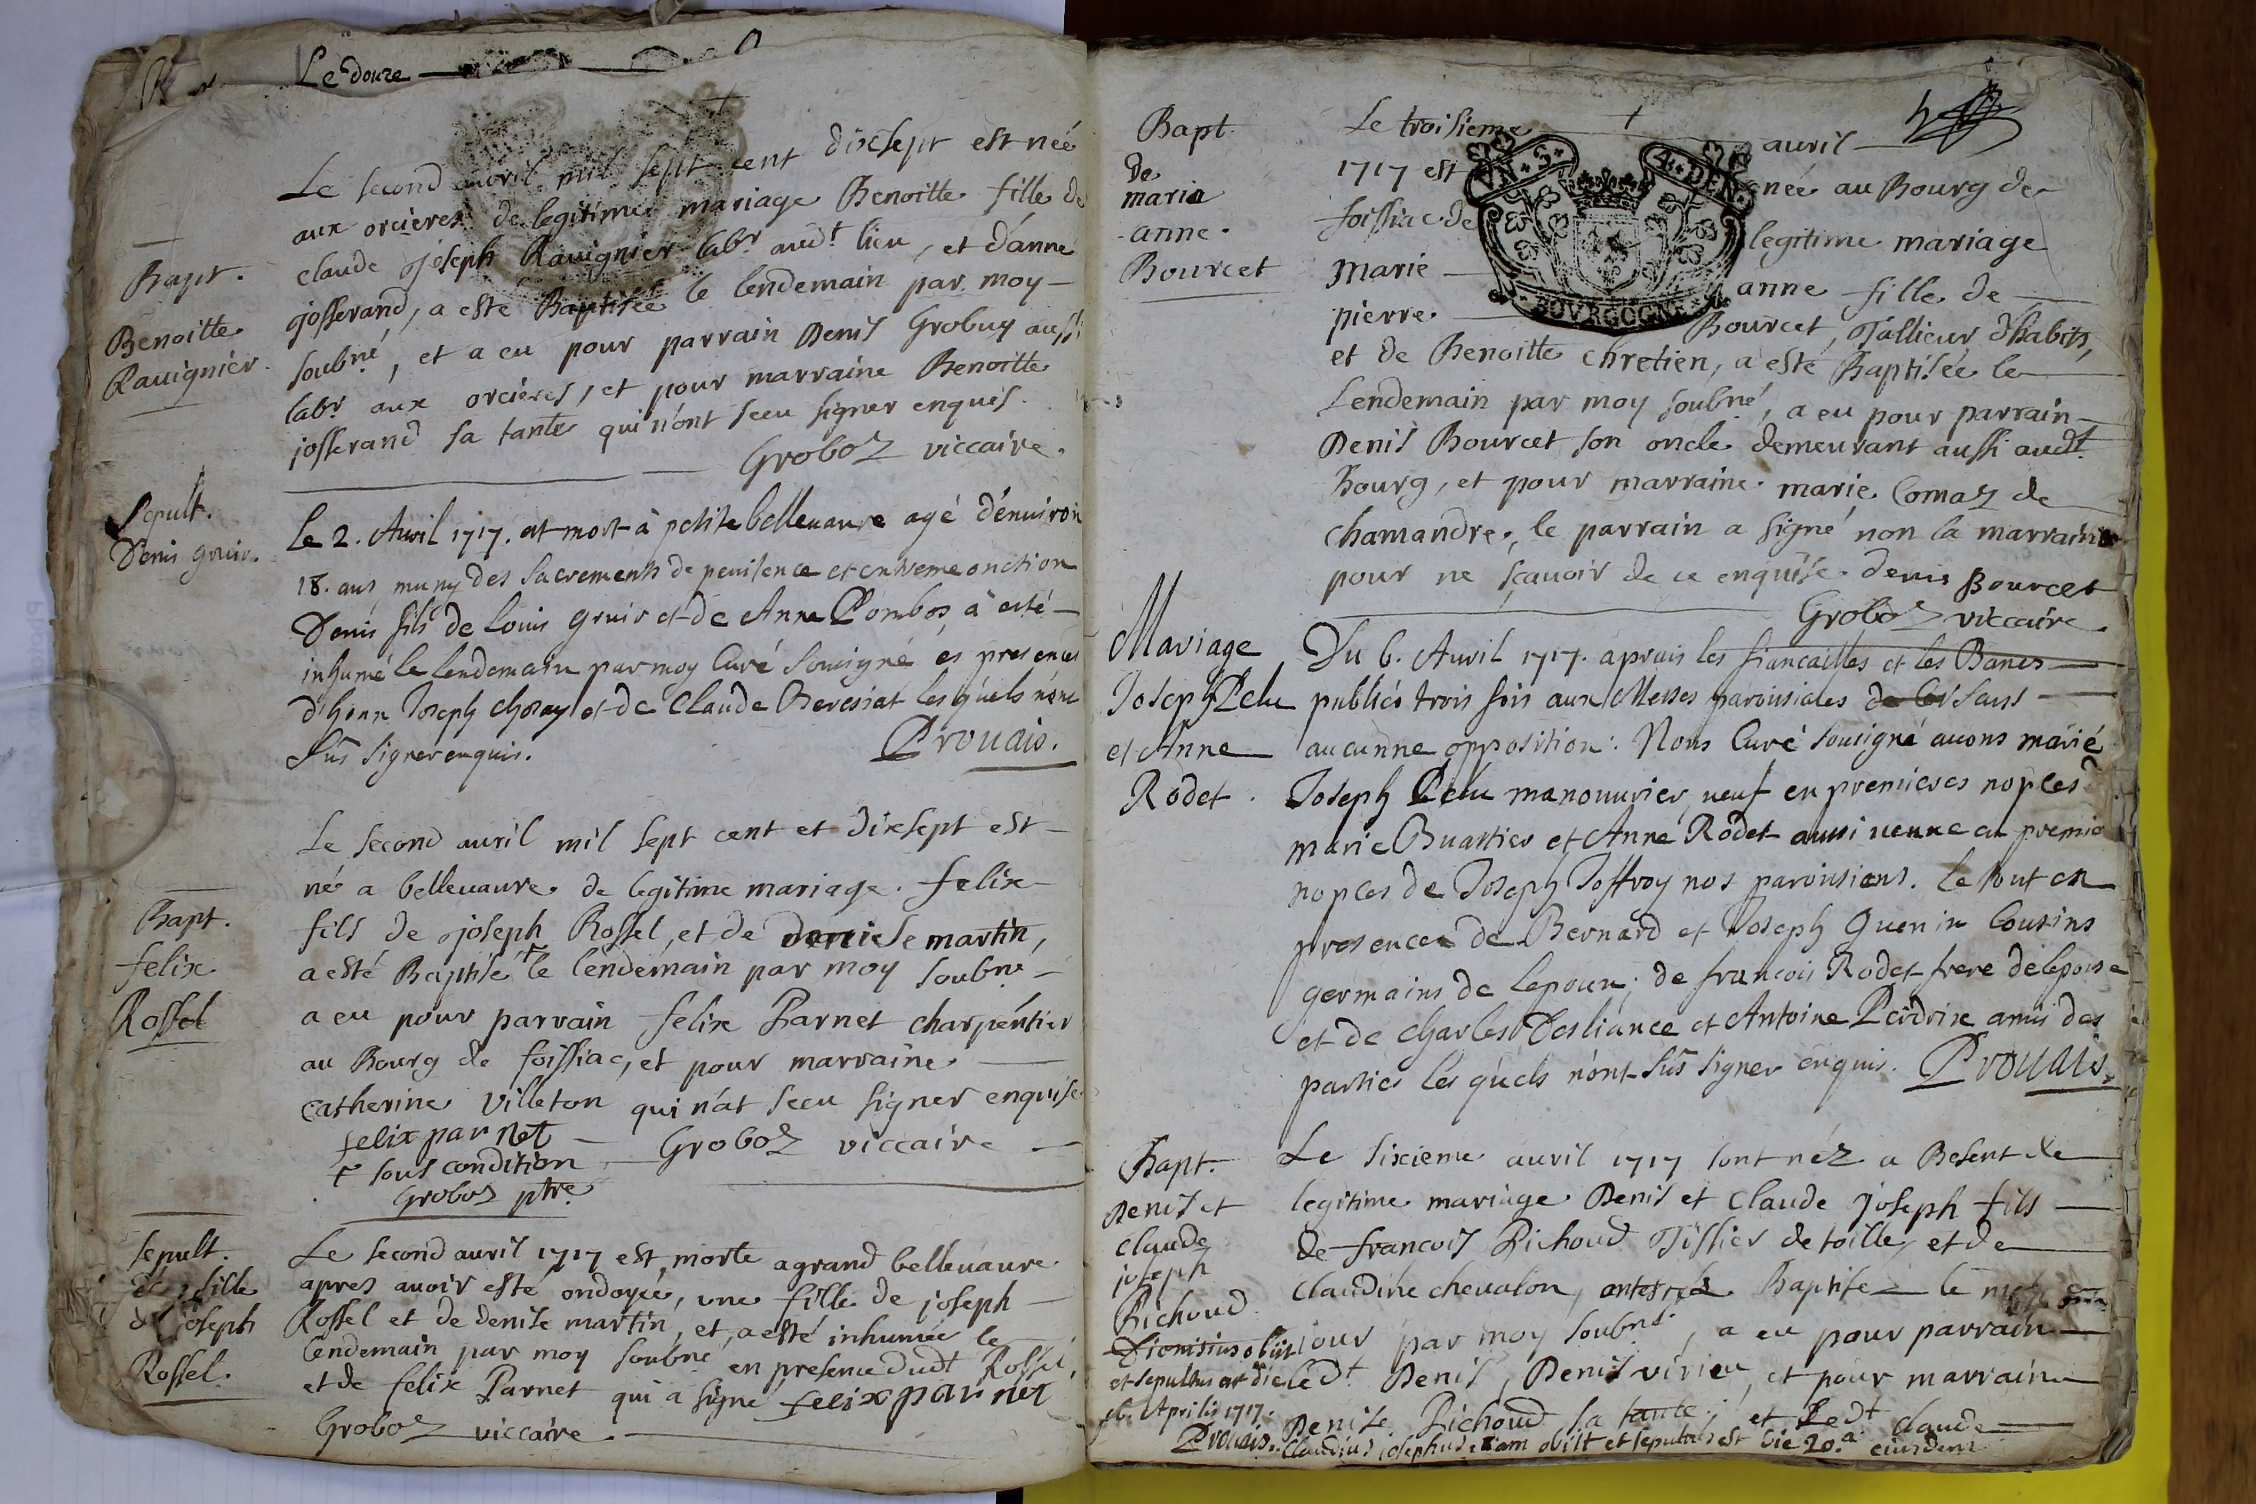 Le douze
Le second auril mil sept cent dixsept est née
aux orcieres de legitime mariage Benoitte fille de
claude joseph Rauignier labr audt lieu, et d'anne
josserand, a esté Baptisée le lendemain par moy
soubné, et a eu pour parrain Denis Grobuy aussi
labr aux orcieres, et pour marraine Benoitte
josserand sa tante qui n'ont sceu signer enquis.
GroboZ viccaire.
Bapt.
Benoitte
Rauignier.
Sepult.
Denis gruir.
Le 2. Auril 1717. est mort à petite belleuaure agé d'enuiron
18. ans muny des Sacrements de penitence et extreme onction
Denis fils de Louis gruir et de Anne Pombos à esté
inhumé le lendemain par moy Curé Sousigné és presences
d'honn Joseph Choray et de Claude Beressiat les quels n'ont
sus signer enquis. Prouais.
Le second auril mil sept cent et dixsept est
né a belleuaure de legitime mariage felix
fils de joseph Rossel, et de denise martin,
a esté Baptisé + le lendemain par moy soubné
a eu pour parrain felix Parnet charpentier
au Bourg de foissiac, et pour marraine
catherine Villeton qui n'at sceu signer enquise
felix par net
+ sous condition GroboZ viccaire
GroboZ ptre
Bapt.
felix
Rossel
sepult.
fille
de joseph
Rossel.
Le second auril 1717 est morte a grand belleuaure
apres auoir esté ondoyée, une fille de joseph
Rossel et de denise martin, et, a esté inhumée le
lendemain par moy soubné en presence dudt Rossel,
et de felix Parnet qui a signé felix par net
GroboZ viccaire.
Bapt.
de
maria
anne.
Bourcet
Le troisieme auril
1717 est née au Bourg de
foissiac de legitime mariage
Marie anne fille de
pierre Bourcet, Taillieur d'habits,
et de Benoitte chretien, a esté Baptisée le
Lendemain par moy soubné, a eu pour parrain
Denis Bourcet son oncle demeurant aussi audt
Bourg, et pour marraine marie ComaZ de
chamandre, le parrain a signé non la marraine
pour ne sçauoir de ce enquise. denis Bourcet
GroboZ viccaire.
VN • S • 4 • DEN •
BOVRGOGNE
Mariage
Joseph Pelu
et Anne
Rodet.
Du 6. Auril 1717. apruis les fiancailles et les Bancs
publiés trois fois aux Messes paroisiales de Sans
aucunne opposition: Nous Curé sousigné auons marié
Joseph Pelu manouurier ueuf en premieres nopces d
marie Buartier et Anne Rodet aussi ueuue en premie
nopces de Joseph Joffroy nos paroisiens. Le tout en
presences de Bernard et Joseph Guenin Cousins
germains de Lepoux; de francois Rodet frere de lepouse
et de charles Desliance et Antoine Perdrix amis des
parties les quels n'ont sus signer enquis. Prouais.
Bapt.
Denis et
claude
joseph
Richoud
Dionisius obiit
et sepultus est die
Aprilis 1717.
Prouais.
Le sixieme auril 1717 sont néz a Besent de
legitime mariage Denis et Claude joseph fils
de francois Richoud Tissier de toille, et de
Claudine cheualon, Baptisez le
jour par moy soubné, a eu pour parrain
ledt Denis, Denis virieu, et pour marraine
Denise Richoud sa tante. et Ledt claude
Claudius josephus etiam obiit et sepultus est die 20.a eiusdem